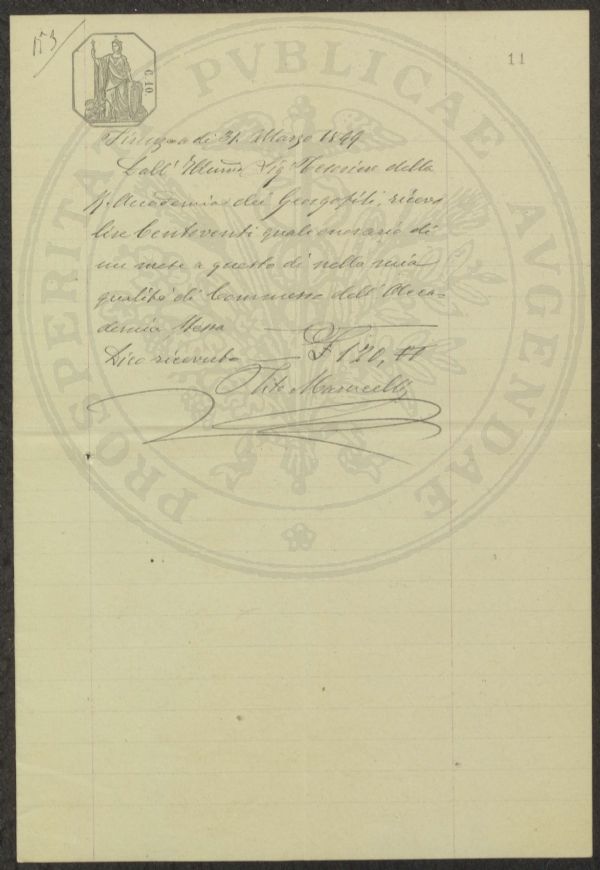 153
11
C. 10
PROSPERITATI PVBLICAE AVGENDAE
Firenze a di 31 Marzo 1899
Dall' Illmo Sig Tesoriere della
R. Accademia dei Georgofili, ricevo
lire Centoventi quali onorario di
un mese a questo dì nella mia
qualità di Commesso dell' Acca-
demia stessa
Dico ricevute — £ 120,
Tito Marucelli